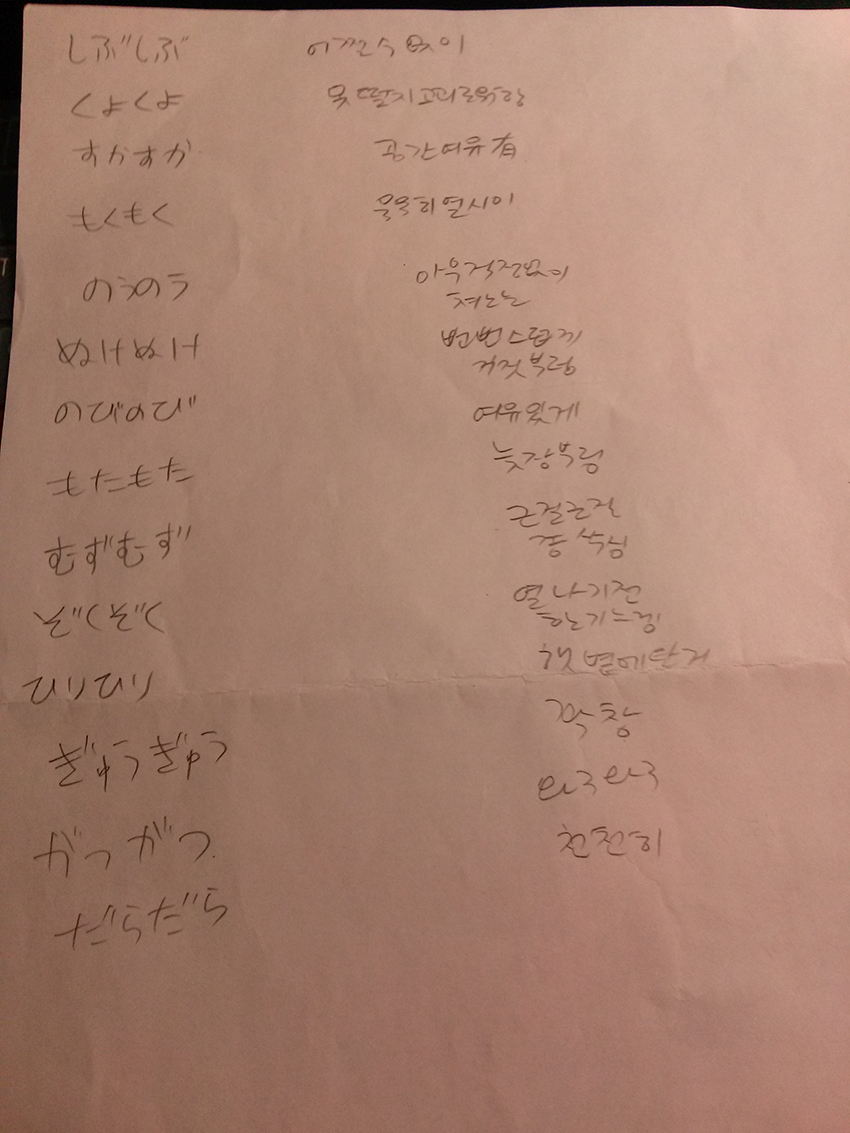 しぶしぶ 어쩔수없이
くよくよ
すかすか 공간여유有
もくもく 묵묵히 열시미
のうのう 아무걱정없이
ぬけぬけ 뻔뻔스럽게
거짓부렁
のびのび 여유있게
もたもた 늦장부림
むずむず 근질근질
ぞくぞく 열나기전
한기느낌
ひりひり 햇볕에탄거
ぎゅうぎゅう 꽉참
がつがつ 와구와구
だらだら 천천히